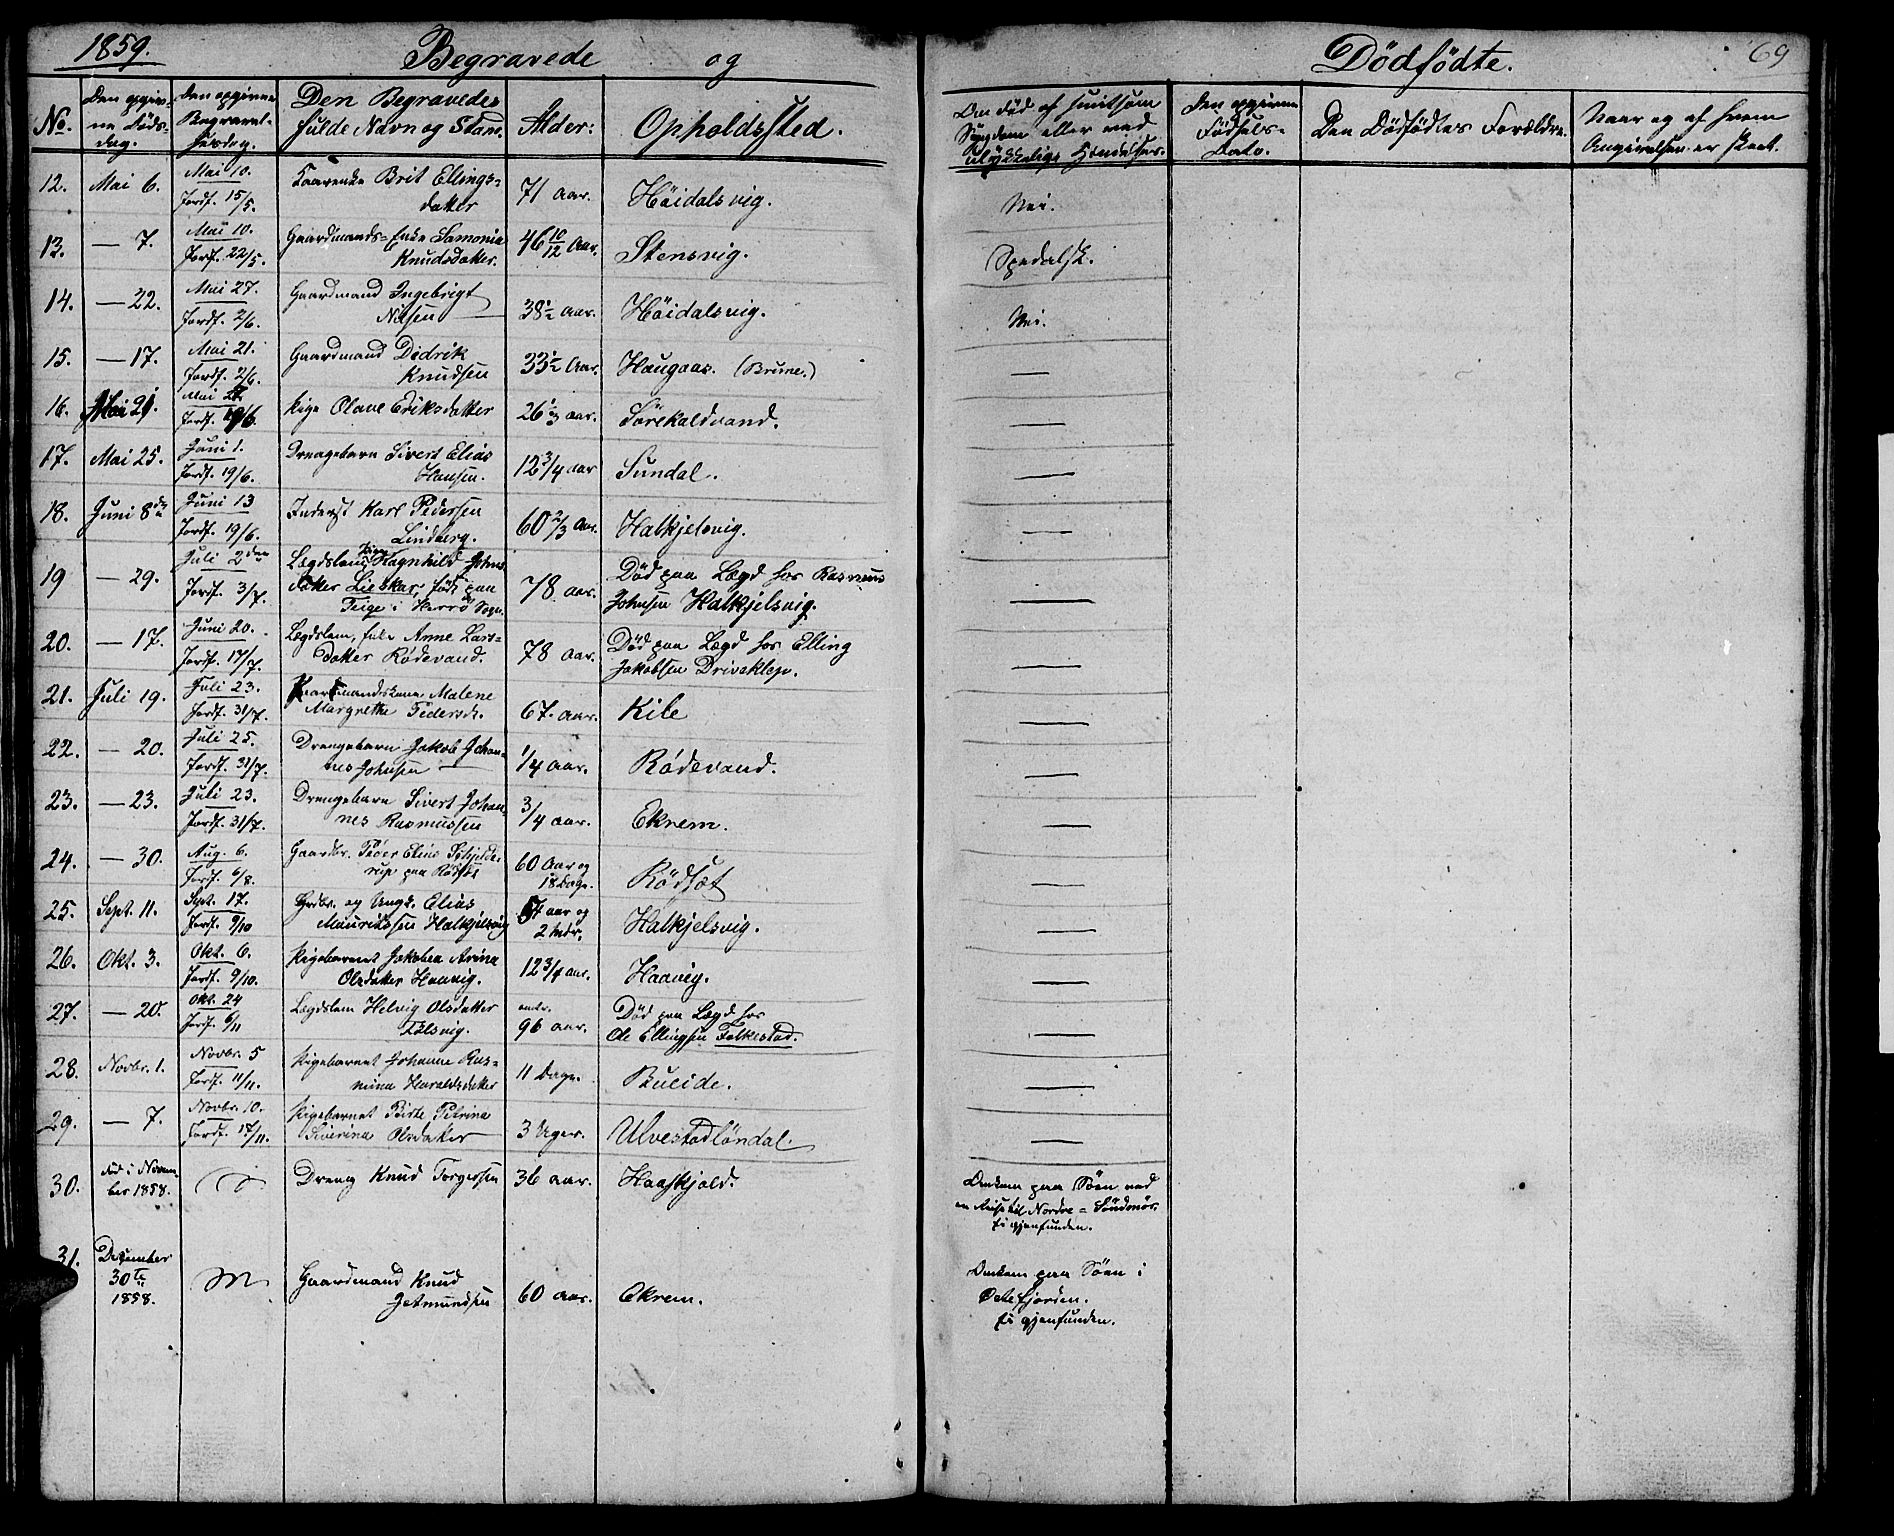 1859. Begravede og Dødfødte. 69
No. Den opgivne Døds-dag. Den opgivne Begravelsesdag. Den Begravedes fulde Navn og Stand. Alder: Opholdssted. Om død af smitsom Sygdom eller ved ulykkelige Hændelser. Den opgivne Fødsels-Dato. Den Dødfødtes Forældre. Naar og af hvem Angivelsen er skeet.
12. Mai 6. Mai 10. Jordf. 15/5. Kaarenke Brit Ellings=datter 71 Aar. Höidalsvig. Nei.
13. — 7. Mai 10. Jordf. 22/5. Gaardmands=Enke Samonie Knudsdatter. 46 10/12 Aar. Stensvig. Spedalsk.
14. — 22. Mai 27. Jordf. 2/6. Gaardmand Ingebrigt Nilsen 38½ Aar. Höidalsvig. Nei.
15. — 17. Mai 21. Jordf. 2/6. Gaardmand Didrik Knudsen 33½ Aar. Haugaas. (Brune.) —
16. Mai 21. Mai Jordf. 19/6. Pige Olave Eriksdatter 26⅓ Aar. Sörekaldvand. —
17. Mai 25. Juni 1. Jordf. 19/6. Drengebarn Sivert Elias Hansen. 12 3/4 Aar Sundal. —
18. Juni 8de Juni 13 Jordf. 19/6. Inderst Karl Pedersen Lindberg. 60 2/3 Aar. Halkjelsvig. —
19 — 29. Juli 2den Jordf. 3/7. Lægdslem Pige Ragnhild Johnsdatter Lieskar, født paa Teige i Herrø Sogn. 78 Aar. Død paa Lægd hos Rasmus Johnsen Halkjelsvig. —
20. — 17. Juni 20. Jordf. 17/7. Lægdslem, Anne Lars=datter Rödevand. 78 Aar. Død paa Lægd hos Elling Jakobsen Driveklep. —
21. Juli 19. Juli 23. Jordf. 31/7. Malene Margrethe Pedersd. 67. Aar. Kile —
22. — 20. Juli 25. Jordf. 31/7. Drengebarn Jakob Johannes Johnsen 1/4 Aar. Rödevand. —
23. — 23. Juli 23. Jordf. 31/7. Drengebarn Sivert Johannes Rasmussen 3/4 Aar. Ekrem. —
24. — 30. Aug. 6. Jordf. 6/8. Gaardbr. Peder Elias Schjelderup paa Rödset 60 Aar og 18 Dage. Rödsæt —
25. Sept. 11. Sept. 17. Jordf. 9/10 Grdbr. og Ungk. Elias Mauritssen Halkjelsvig 57 Aar og 2 Mdr. Halkjelsvig. —
26. Okt. 3. Okt. 6. Jordf. 9/10. Pigebarnet Jakobea Avina Olsdatter Haavig. 12 3/4 Aar. Haavig. —
27. — 20. Okt. 24 Jordf. 6/11 Lægdslem Helvig Olsdatter Fålsvig. omtr. 96 Aar. Død paa Lægd hos Ole Ellingsen Folkestad. —
28. Novbr. 1. Novbr. 5 Jordf. 11/11. Pigebarnet Johanne Rasmina Haraldsdatter 11 Dage. Bueide. —
29. — 7. Novbr. 10. Jordf. 17/11. Pigebarnet Birte Petrina Severina Olsdatter 3 Uger. Ulvestadløndal. —
30. død i November 1858. Dreng Knud Torgersen 36 Aar. Haaskjold. Omkom paa Söen ved en Reise til Nordre=Söndmör. Ei gjenfunden.
31. December 30te 1858. Gaardmand Knud Jetmundsen 60 Aar. Ekrem. Omkom paa Söen i Örstefjorden. Ei gjenfunden.